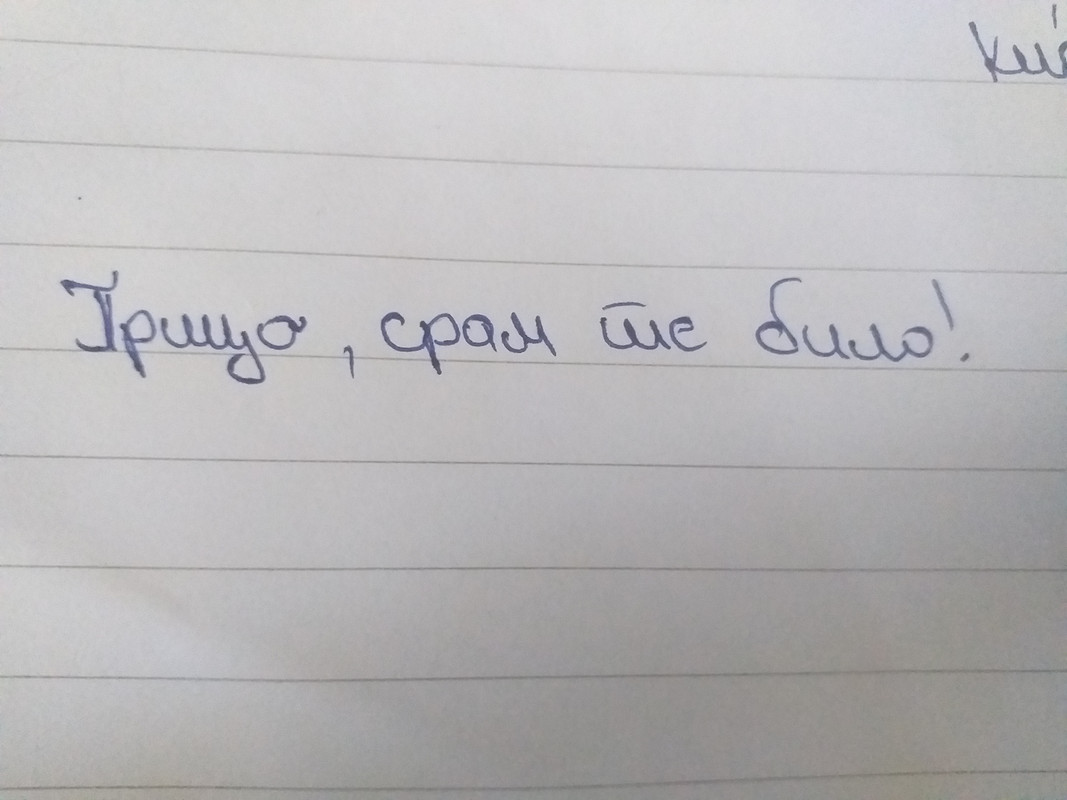 Грицо, срам те било!